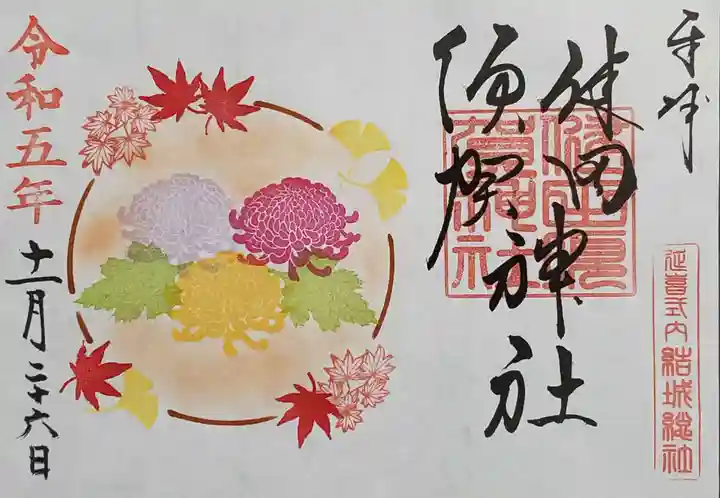 奉拝
延喜式内 結城総社
健田神社
須賀神社
令和五年
十一月二十六日